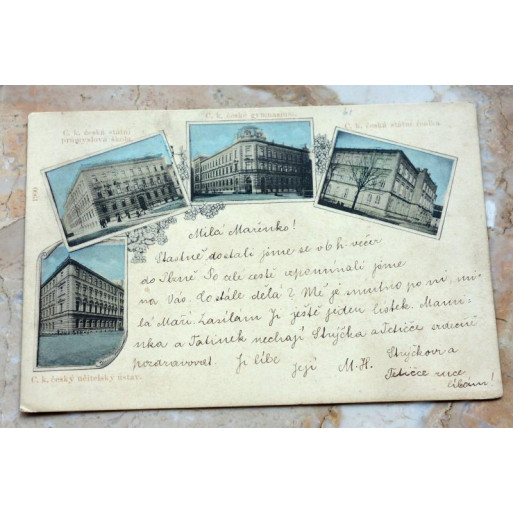 C. k. české gymnasium.
C. k. česká státní
průmyslová škola.
C. k. česká státní škola.
1900
Milá Mařenko!
Šťastně dostali jsme se v 6 h. večer
do Brné. Po celé cestě vzpomínali jsme
na Vás. Co stále dělá? Mě je smutno po ní, mi-
lá Maří. Zasílám Jí ještě jeden lístek. Mamin-
ka a Tatínek nechají Strýčka a Tetičce srdečně
pozdravovat. Ji líbe
její M. H. Strýčkovi a
Tetičce ruce
líbám!
C. k. český učitelský ústav.